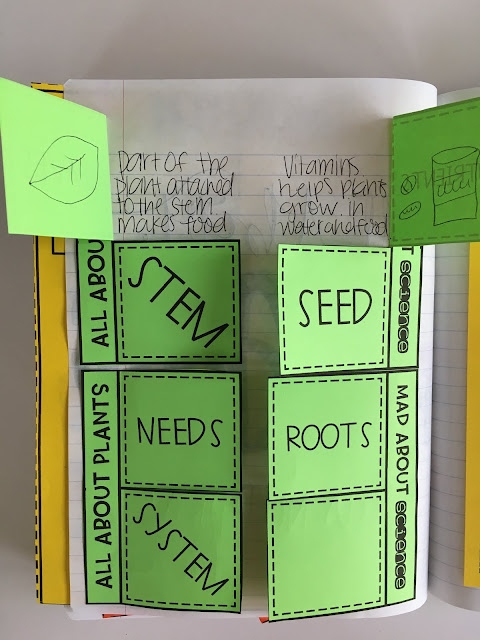 part of the
plant attained
to the stem.
makes food
Vitamins
helps plants
grow in
water and food
ALL ABOU
STEM
SEED
T science
ALL ABOUT PLANTS
NEEDS
SYSTEM
ROOTS
MAD ABOUT science